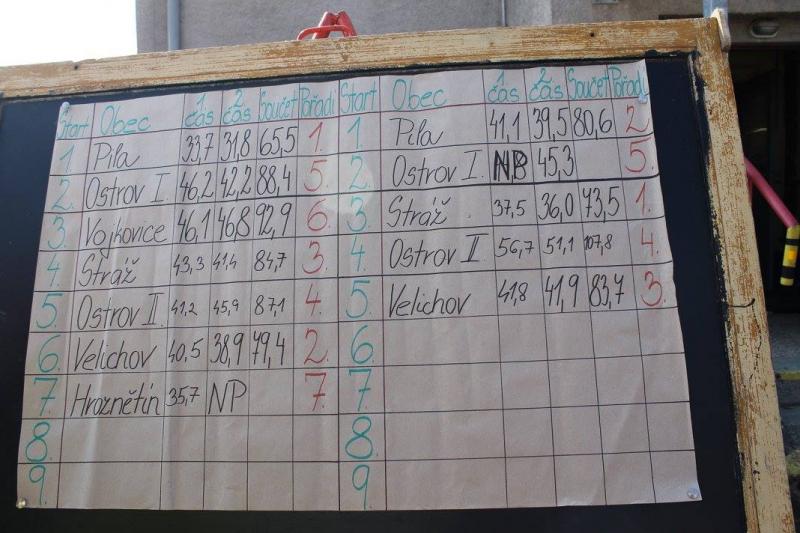 Start Obec 1 čas 2 čas Součet Pořadí Start Obec 1 čas 2 čas Součet Pořadí
1. Pila 33,7 31,8 65,5 1. 1. Pila 41,1 39,5 80,6 2.
2. Ostrov I. 46,2 42,2 88,4 5. 2. Ostrov I. NP 45,3 5.
3. Vojkovice 46,1 46,8 92,9 6. 3. Stráž. 37,5 36,0 73,5 1.
4. Stráž 43,3 41,4 84,7 3. 4. Ostrov II 56,7 51,1 107,8 4.
5. Ostrov II. 41,2 45,9 87,1 4. 5. Velichov 41,8 41,9 83,7 3.
6. Velichov 40,5 38,9 79,4 2. 6.
7. Hroznětín 35,7 NP 7. 7.
8. 8.
9. 9.